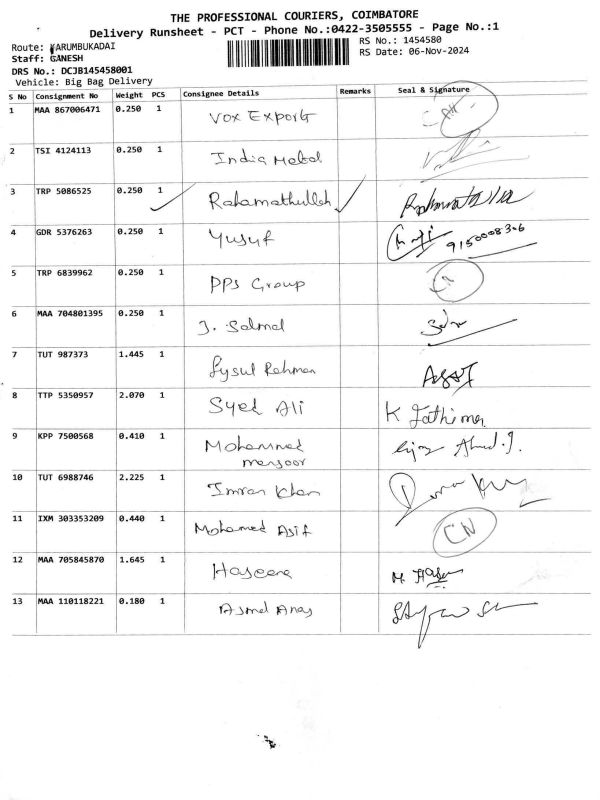 THE PROFESSIONAL COURIERS, COIMBATORE
Delivery Runsheet - PCT - Phone No.:0422-3505555 - Page No.:1
Route: KARUMBUKADAI
RS No.: 1454580
Staff: GANESH
RS Date: 06-Nov-2024
DRS No.: DCJB145458001
Vehicle: Big Bag Delivery
S No Consignment No Weight PCS Consignee Details Remarks Seal & Signature
1 MAA 867006471 0.250 1 Vox Export
2 TSI 4124113 0.250 1 India Metal
3 TRP 5086525 0.250 1 Rahamathullah
4 GDR 5376263 0.250 1 Yusuf 9150008306
5 TRP 6839962 0.250 1 PPS Group
6 MAA 704801395 0.250 1 J. Salmal
7 TUT 987373 1.445 1 Rehman
8 TTP 5350957 2.070 1 Syed Ali K Fathima
9 KPP 7500568 0.410 1 Mohammed
mansoor
10 TUT 6988746 2.225 1 Imran Khan
11 IXM 303353209 0.440 1 Mohamed Asif CN
12 MAA 705845870 1.645 1 Haseena
13 MAA 110118221 0.180 1 Anas